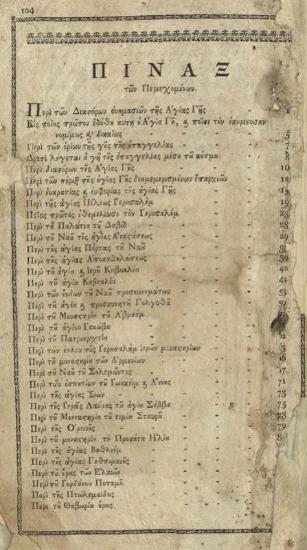 104
ΠΙΝΑΞ
τῶν Περιεχομένων.
Περὶ τῶν Διαφόρων ὀνομασιῶν τῆς Ἁγίας Γῆς
Εἰς ποῖον πρῶτον ἐδόθη αὐτὴ ἡ Ἁγία Γῆ, καὶ ποῖοι τὴν ἐκυρίευσαν
νομίμως καὶ δικαίως 5
Περὶ τῶν ὁρίων τῆς γῆς τῆς ἐπαγγελίας 7
Διατὶ λέγεται ἡ γῆ τῆς ἐπαγγελίας μέσον τȣ κόσμȣ 8
Περὶ διαφόρων τῆς Ἁγίας Γῆς 10
Περὶ τῶν πέριξ τῆς ἁγίας Γῆς διαμεμερισμένων ἐπαρχιῶν 12
Περὶ εὐκρασίας καὶ εὐφορίας τῆς ἁγίας γῆς
Περὶ τῆς ἁγίας Πόλεως Ἱερουσαλήμ
Ποῖος πρῶτος ἐθεμελίωσε τὴν Ἱερουσαλήμ
Περὶ τȣ Παλατίȣ τȣ Δαβίδ
Περὶ τȣ Ναȣ τῆς ἁγίας Ἀναστάσεως
Περὶ τῆς ἁγίας Πόρτας τȣ Ναȣ
Περὶ τῆς ἁγίας Ἀποκαθηλώσεως
Περὶ τȣ ἁγίȣ καὶ ἱερȣ Κȣβȣκλίȣ
Περὶ τȣ ἁγίȣ Κȣβȣκλίȣ
Περὶ τῶν ἔνδον τȣ Ναȣ προσκυνημάτων
Περὶ τȣ ἁγίȣ καὶ προσκυνητȣ Γολγοθᾶ
Περὶ τȣ Μοναστηρίȣ τȣ Ἀβραάμ
Περὶ τȣ ἁγίȣ Ἰακώβȣ
Περὶ τȣ Πατριαρχείȣ
Περὶ τῶν ἐντὸς τῆς Ἱερουσαλὴμ ἱερῶν μοναστηρίων
Περὶ τȣ μοναστηρίȣ τῶν Ἀρμενίων
Περὶ τȣ Ναȣ τȣ Σολομῶντος
Περὶ τȣ ὁσπιτίȣ τȣ Ἰωακεὶμ καὶ Ἄννας
Περὶ τῆς ἁγίας Σιών 73
Περὶ τῆς Ἱερᾶς Λαύρας τȣ ἁγίȣ Σάββα 75
Περὶ τȣ Μοναστηρίȣ τȣ τιμίȣ Σταυρȣ 78
Περὶ τῆς Ὀρεινῆς 79
Περὶ τȣ μοναστηρίȣ τȣ Προφήτȣ Ἠλιȣ
Περὶ τῆς ἁγίας Βηθλεέμ
Περὶ τῆς ἁγίας Γεθσημανῆς
Περὶ τȣ ὄρȣς τῶν Ἐλαιῶν
Περὶ τȣ Ἰορδάνȣ Ποταμȣ
Περὶ τῆς Πτολεμαΐδος
Περὶ τȣ Θαβωρίȣ ὄρȣς